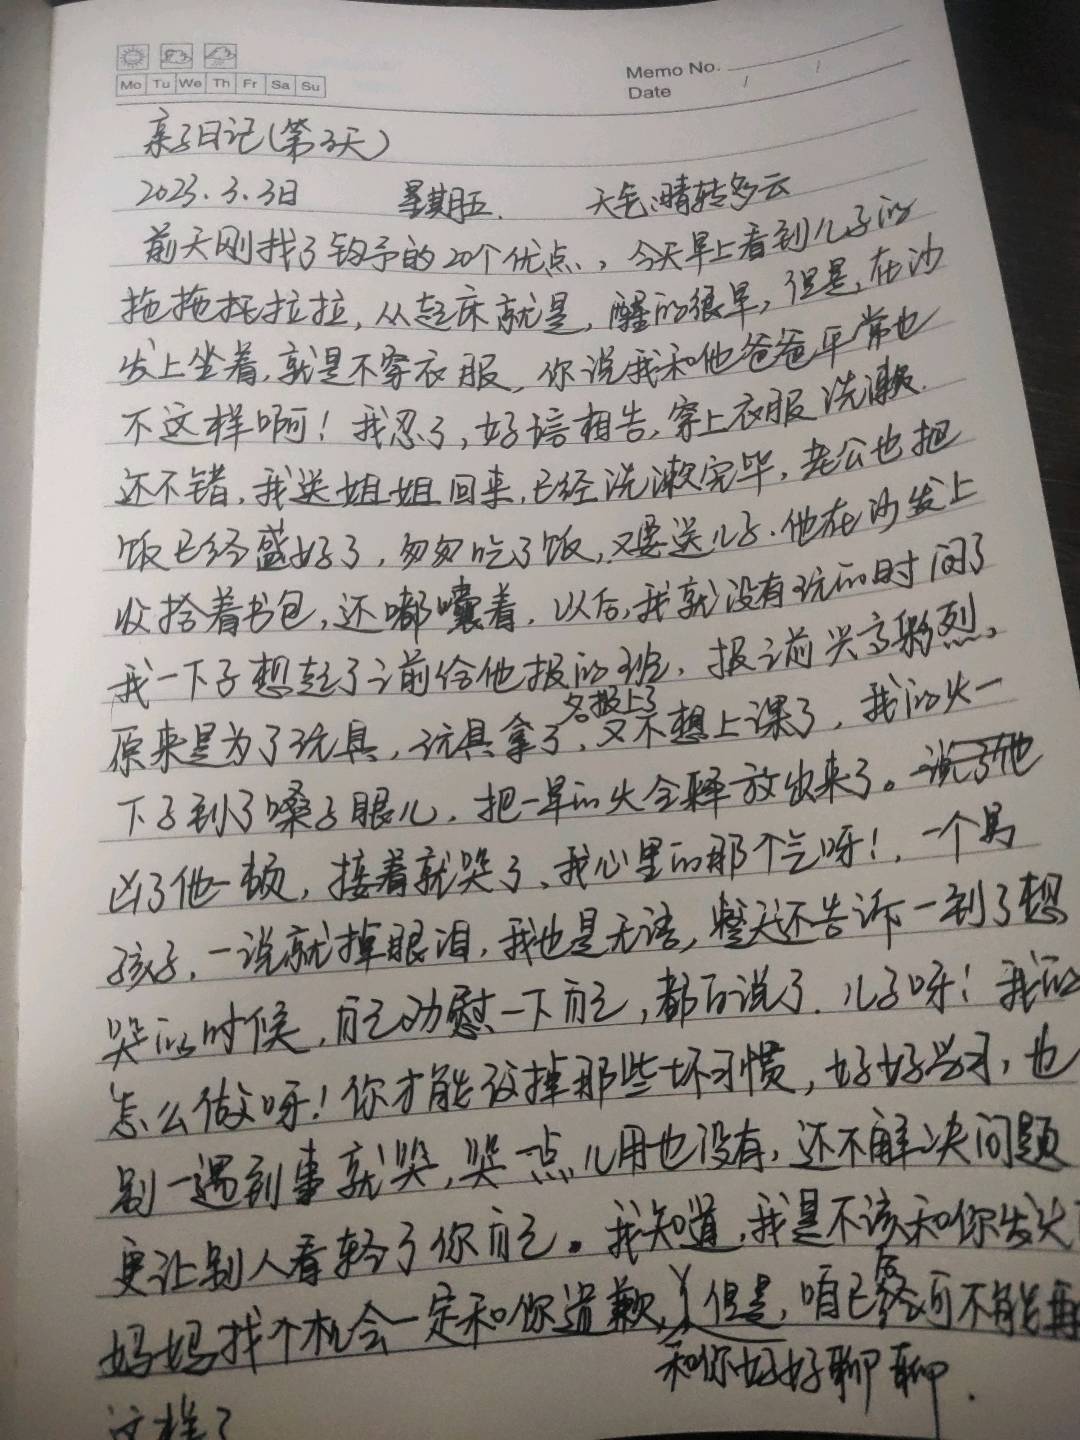 Memo No.
Mo Tu We Th Fr Sa Su
Date / /
亲子日记(第3天)
2023.3.3日 星期五. 天气:晴转多云
前天刚找了钧予的20个优点、,今天早上看到儿子的
拖拖拉拉,从起床就是,醒的很早,但是,在沙
发上坐着,就是不穿衣服,你说我和他爸爸平常也
不这样啊!我忍了,好言相告,穿上衣服洗漱.
还不错,我送姐姐回来,已经洗漱完毕,老公也把
饭已经盛好了,匆匆吃了饭,又要送儿子.他在沙发上
收拾着书包,还嘟囔着,以后,我就没有玩的时间了
我一下子想起了之前给他报的班,报之前兴高彩烈,
原来是为了玩具,玩具拿了、名报上了又不想上课了,我的火一
下子到了嗓子眼儿,把一早的火全释放出来了。
凶了他一顿,接着就哭了、我心里的那个气呀!,一个男
孩子,一说就掉眼泪,我也是无语,整天还告诉一到了想
哭的时候,自己劝慰一下自己,都白说了.儿子呀!我的
怎么做呀!你才能改掉那些坏习惯,好好学习,也
别一遇到事就哭,哭一点儿用也没有,还不解决问题
更让别人看轻了你自己。我知道,我是不该和你发火
妈妈找个机会一定和你道歉,和你好好聊聊.但是,咱已后可不能再
这样了